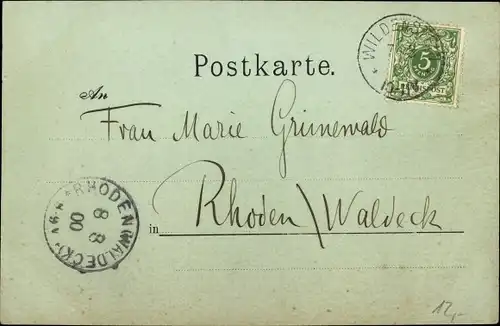 Postkarte.
5
An
Frau Marie Grünewald
in Rhoden / Waldeck
RHODEN (WALDECK)
8 8
00
12,-